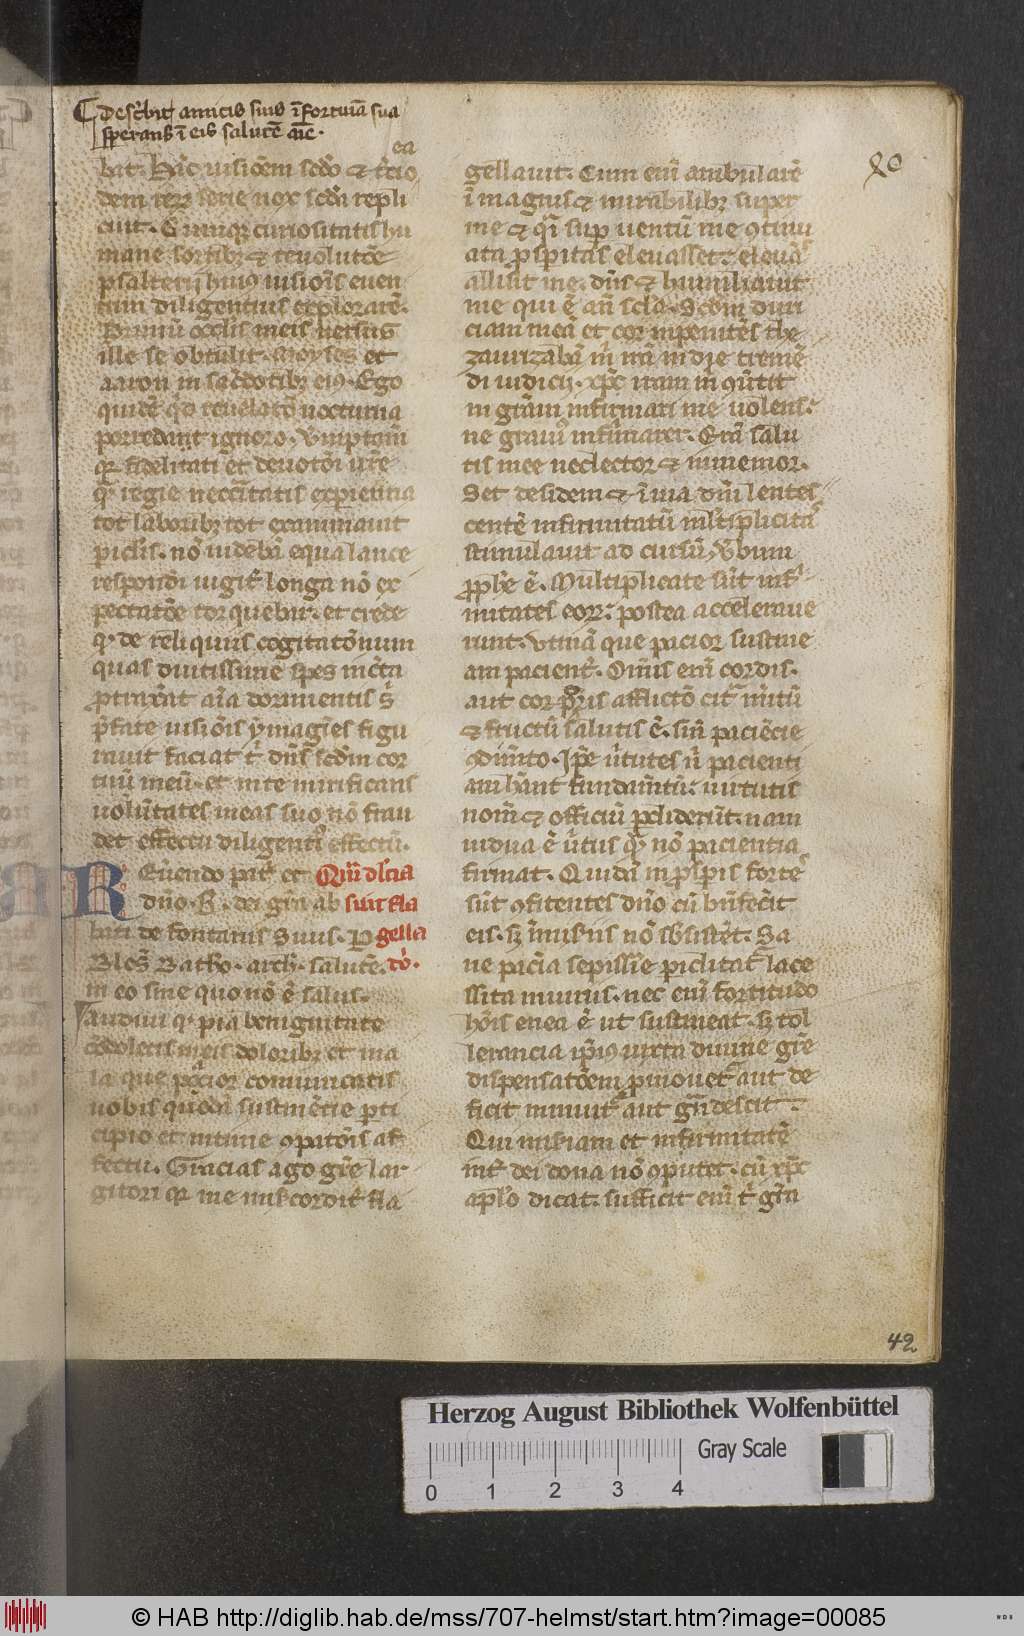 Describit amicis suis ī fortunā sua
sperans ī eis salutē aīe.
ea
bat. Hāc visiōem scdō & t̄cio
dem reꝝ serie nox scdā repli
cuit. Cumqꝫ curiositatis hu
mane sortibꝫ & revolutōe
psalterij huius visiōis even
tum diligentius explorarē.
Primū occlis meis versus
ille se obtulit. Moyses et
aaron in sac̄dotibꝫ eiꝰ. Ego
quidē qd revelatō nocturna
portendāt ignoro. Verūptamen
qꝛ fidelitati et devotōi vr̄e
qᵃ regie neccītatis experientia
tot laboribꝫ tot examinavit
piclis. nō videbr̄ equa lance
respondi iugit̄ longa nō ex
pectatōe torquebitur. et crede
qꝫ de reliquiis cogitatōnum
quas divitissime spes mēta
ptraxat aīa dormientis sᵗ
pfate visiōis ymagines figu
ravit faciat tⁱ dn̄s scdm cor
tuū meū. et in te mirificans
volūtates meas suo nō frau
det effectu diligentiꝰ effectū.
Reverendo patⁱ et Quid dulcia
dn̄o .R. dei grā ab sint fla
bati de fontanis Suus .P. gella
Bles̄ Batho. arch. salutē. tō.
in eo sine quo nō ē salus.
Audivi qꝫ pia benignitate
cōdoletis meis doloribꝫ et ma
la que pacior comunicatis
vobis quedā sustinētie pti
cipio et intime ɔpatōis af
fectu. Gracias ago grē lar
gitori qꝛ me mīscordit̄ fla
gellavit. Cum enī ambularē
ī magnis & mirabilibꝫ super
me & qᵃī sup ventū me ɔtinu
ata pspitas elevasset. elevās
allisit me. dn̄s & humiliavit
me qui ē an̄ scla. Scdm duri
ciam meā et cor inpenitēs the
zaurizabā mⁱ irā in die treme
di iudicij. xp̄c iram in ɔv̄tit
in grām infirmari me volens.
ne graviꝰ infirmarer. Erā salu
tis mee neclector & inmemor.
Set desidem & ī via dn̄i lentes
centē infirmitatū mltiplicitas
stimulavit ad cursū. Verbum
pphe ē. Multiplicate sūt infⁱ
mitates eoꝝ. postea accelerave
runt. Utinā que pacior sustine
am pacient̄. Omis enī cordis.
aut corporis afflictō citᵃ mitū
& fructū salutis ē. sin̄ paciēcie
ɔdimēto. Ipe v̄tutes n̄ pacienti
am hn̄ant fundamētū. virtutis
nomē & officiū pdiderūt. nam
vidua ē v̄tus qᵃ nō paciencia
firmat. Quidā in pspis forte
sūt ɔfitentes dn̄o cū bn̄fecit
eis. sꝫ ī mīseriis nō sb̄sistēt. Sa
ne paciā sepissīe piclitat̄ lace
ssita iniuriis. nec enī fortitudo
hoīs enea ē ut sustineat. sꝫ tol
lerancia ipsiꝰ iuxta divine grē
dispensatōem pmovet̄ aut de
ficit minuit̄ aut gᵃndescit.
Qui miseriam et infirmitatē
int̄ dei dona nō ɔputet. cū xp̄c
aplo dicat. sufficit enī tⁱ grā
80
42
Herzog August Bibliothek Wolfenbüttel
Gray Scale
0 1 2 3 4
© HAB http://diglib.hab.de/mss/707-helmst/start.htm?image=00085